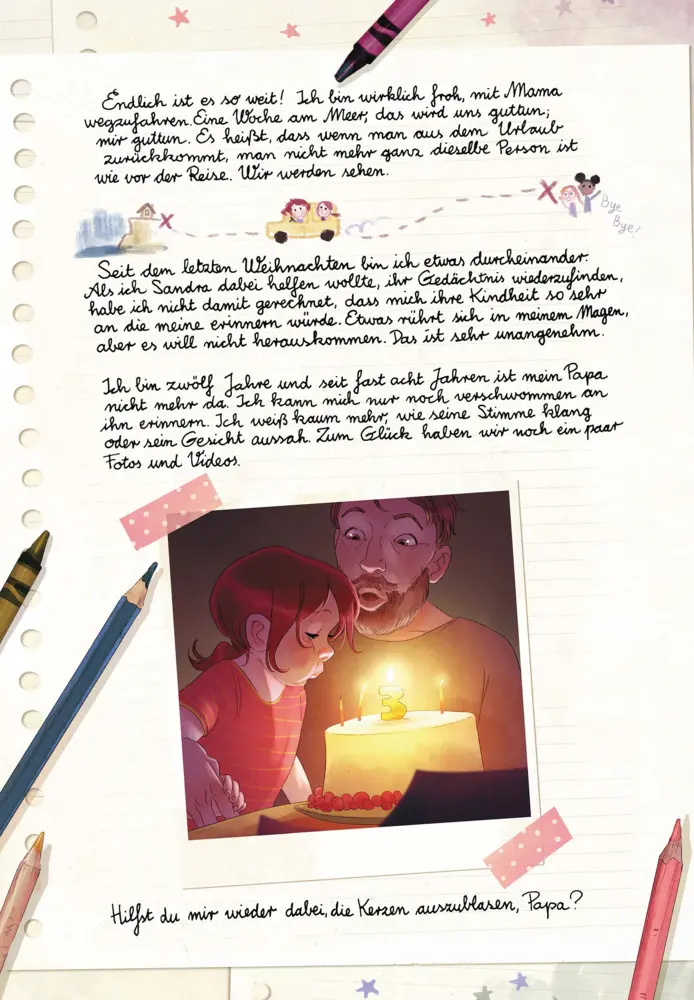 Endlich ist es so weit! Ich bin wirklich froh, mit Mama
wegzufahren. Eine Woche am Meer, das wird uns guttun;
mir guttun. Es heißt, dass wenn man aus dem Urlaub
zurückkommt, man nicht mehr ganz dieselbe Person ist
wie vor der Reise. Wir werden sehen.
Bye
Bye!
Seit dem letzten Weihnachten bin ich etwas durcheinander.
Als ich Sandra dabei helfen wollte, ihr Gedächtnis wiederzufinden,
habe ich nicht damit gerechnet, dass mich ihre Kindheit so sehr
an die meine erinnern würde. Etwas rührt sich in meinem Magen,
aber es will nicht herauskommen. Das ist sehr unangenehm.
Ich bin zwölf Jahre und seit fast acht Jahren ist mein Papa
nicht mehr da. Ich kann mich nur noch verschwommen an
ihn erinnern. Ich weiß kaum mehr, wie seine Stimme klang
oder sein Gesicht aussah. Zum Glück haben wir noch ein paar
Fotos und Videos.
3
Hilfst du mir wieder dabei, die Kerzen auszublasen, Papa?